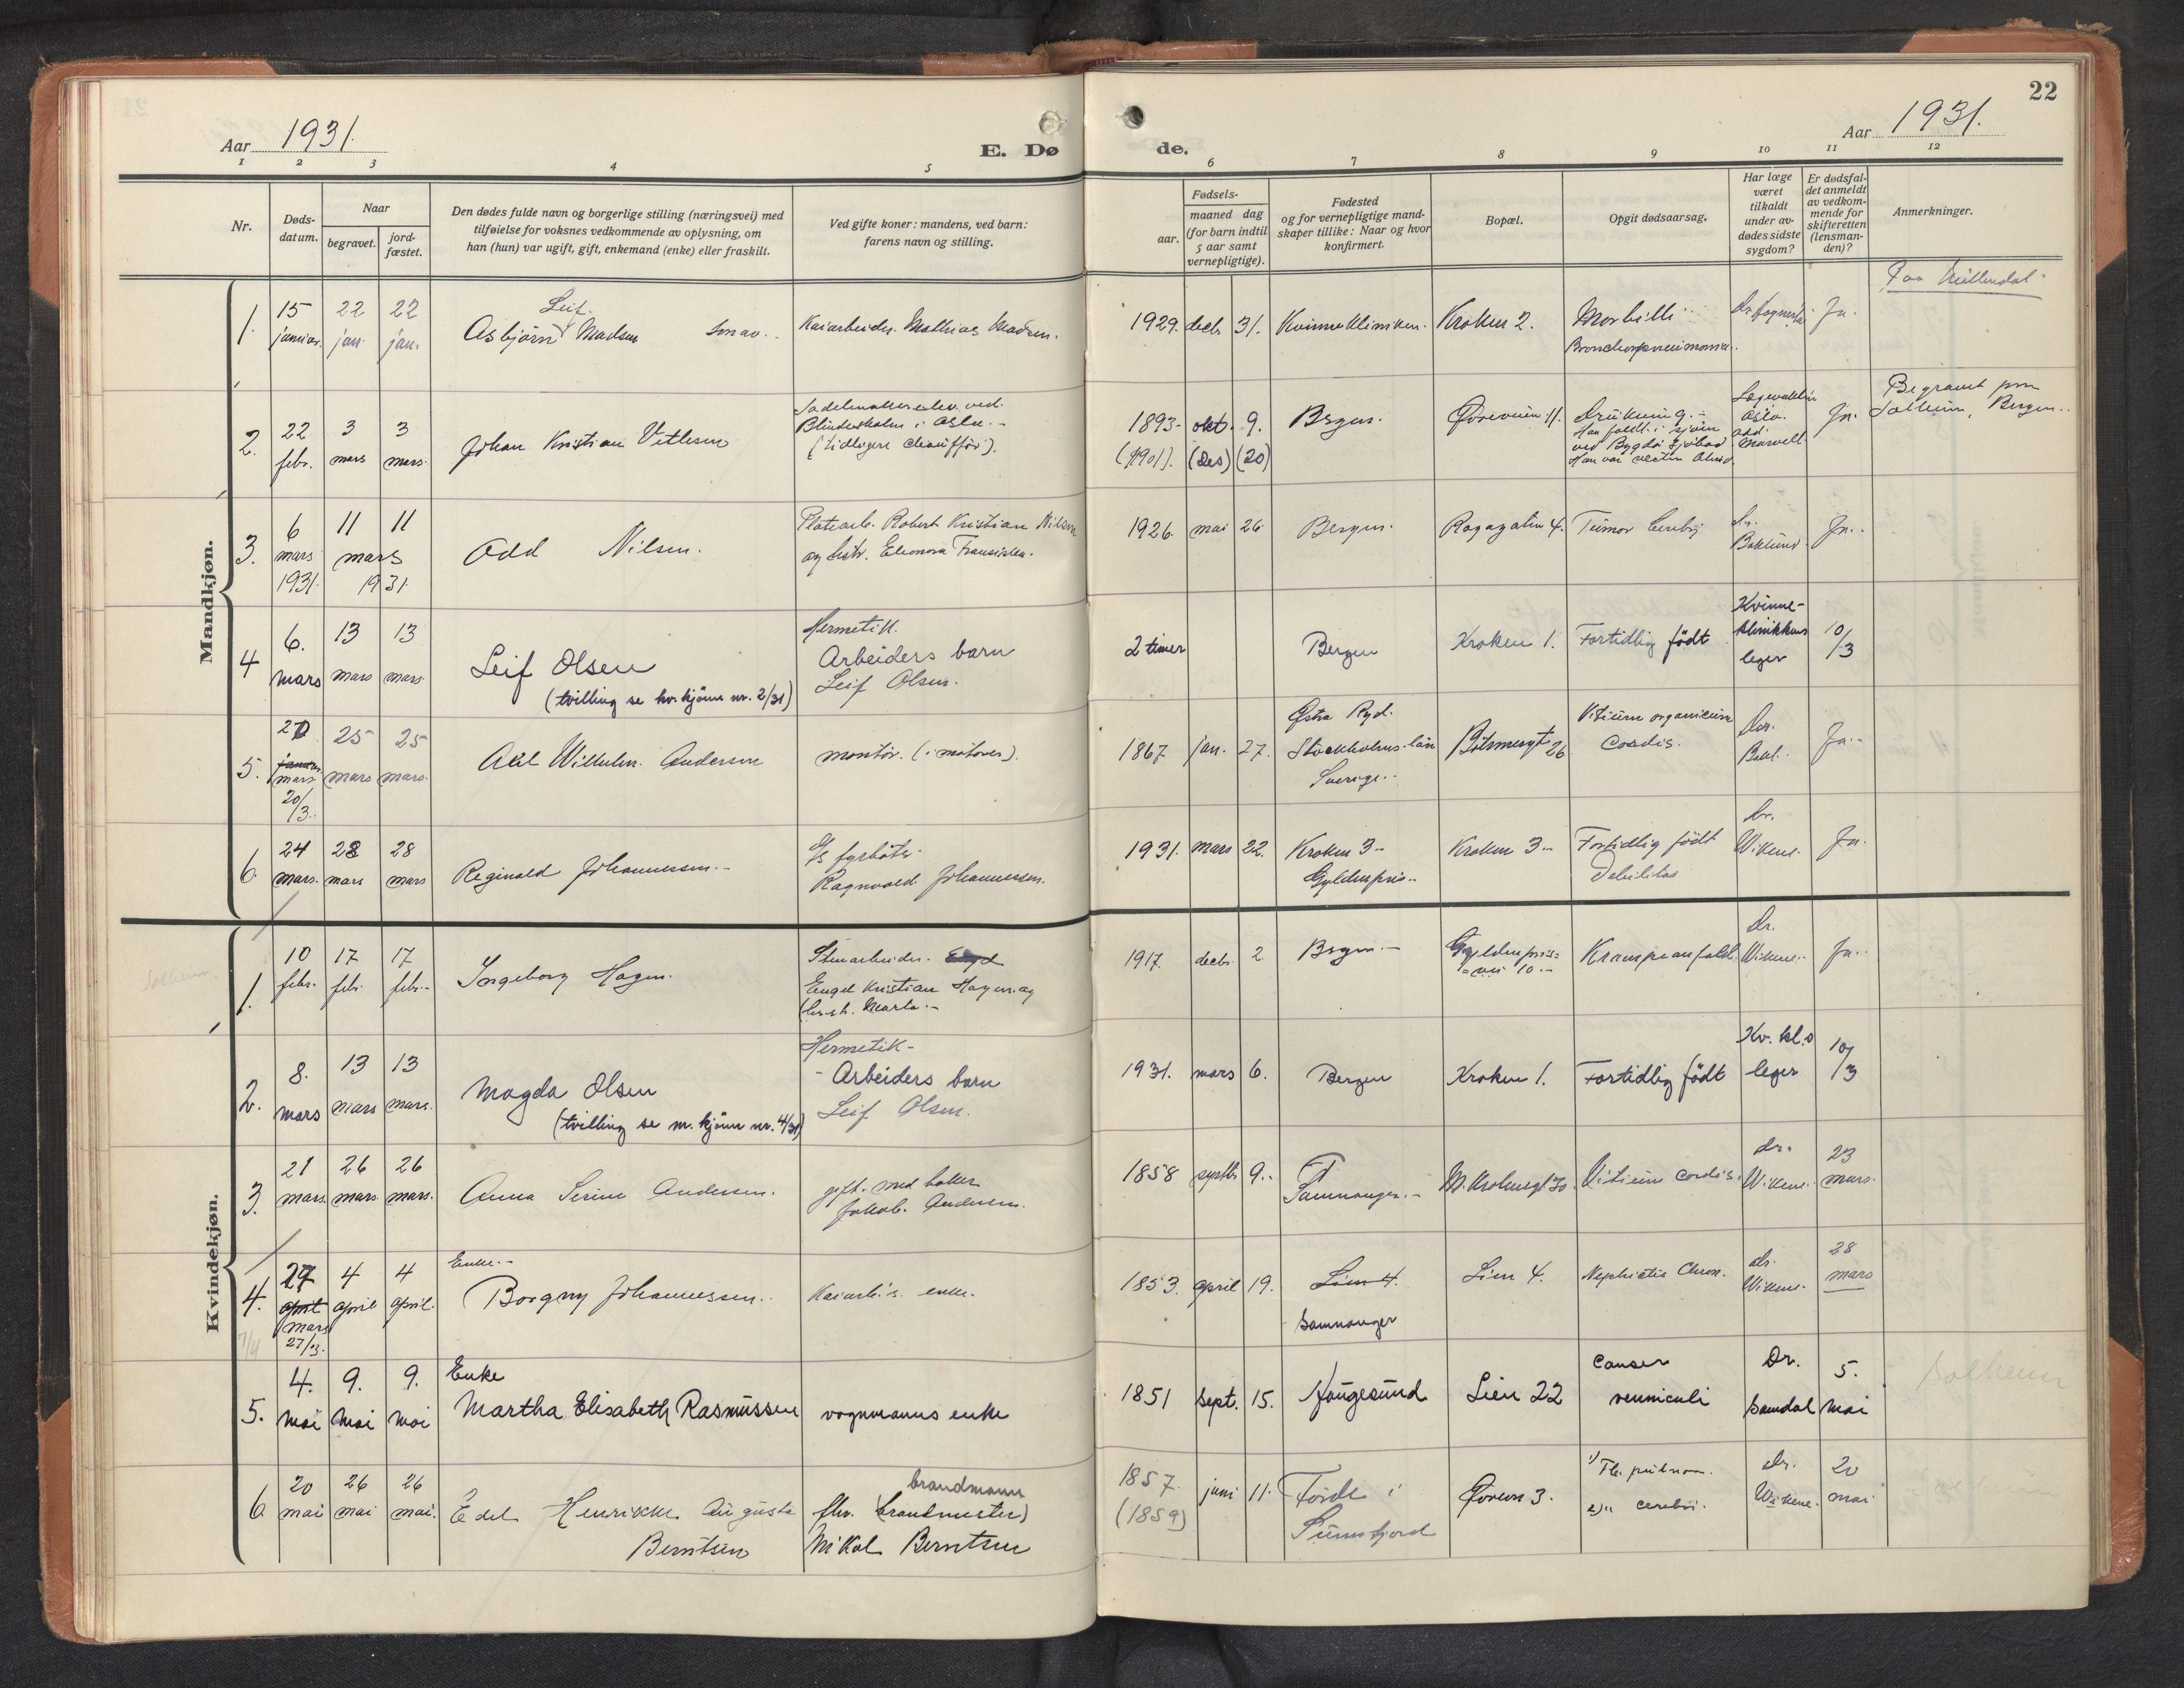 22
Aar 1931.
E. Dø de.
Aar 1931.
1 2 3 4 5 6 7 8 9 10 11 12
Nr.
Døds-
datum.
Naar
begravet.
jord-
fæstet.
Den dødes fulde navn og borgerlige stilling (næringsvei) med
tilføielse for voksnes vedkommende av oplysning, om
han (hun) var ugift, gift, enkemand (enke) eller fraskilt.
Ved gifte koner: mandens, ved barn:
farens navn og stilling.
Fødsels-
aar.
maaned dag
(for barn indtil
5 aar samt
vernepligtige).
Fødested
og for vernepligtige mand-
skaper tillike: Naar og hvor
konfirmert.
Bopæl.
Opgit dødsaarsag.
Har læge
været
tilkaldt
under av-
dødes sidste
sygdom?
Er dødsfal-
det anmeldt
av vedkom-
mende for
skifteretten
(lensman-
den)?
Anmerkninger.
Mandkjøn.
1. 15 januar. 22 jan. 22 jan.
Leif.
Asbjørn Madsen
Kaiarbeider. Mathias Madsen.
1929. decb. 31. Kvinneklinikken. Kroken 2.
Morbilli
Bronchopneumonia.
Ja.
Paa Møllendal
2. 22 febr. 3 mars 3 mars.
Johan Kristian Vetlesen
Sadelmakerelev ved
Blindeskolen i Oslo.
(tidligere chauffør).
1893. okt. 9.
(1901). (des) (20)
Bergen. Øvreveien 11.
Drukning.
Han faldt i sjøen
ved Bygdø Sjøbad
Oslo.
Ja.
Begravet paa
Solheim, Bergen.
3. 6 mars 1931. 11 11 mars 1931
Odd Nilsen.
Platearb. Robert Kristian Nilsen
og hustr. Eleonora Fransiska.
1926. mai 26 Bergen. 4. Tumor Cerebri
dr.
Baklund.
Ja.
4 6. mars 13 mars 13 mars.
Leif Olsen
(tvilling se kv. kjønn nr. 2/31)
Hermetik.
Arbeiders barn
Leif Olsen.
2 timer Bergen Kroken 1. Fortidlig født
Kvinne-
klinikkens
leger
10/3
5. 20 januar mars 20/3. 25 mars 25 mars.
Wilhelm Andersen
montør. (i motorer).
1867. jan. 27.
Østra Ryd.
Stockholms län
Sverige.
26
Vitium organicum
Cordis.
Ja.
6. 24 mars. 28 mars 28 mars
Reginald Johannessen.
fyrbøter
Ragnvald Johannessen.
1931. mars 22.
Kroken 3
Gyldenpris.
Kroken 3
Fortidlig født
Debilitas
dr.
Wikene.
Ja.
Kvindekjøn.
Solheim
1. 10 febr. 17 feb. 17 feb.
Ingeborg Hagen.
Stenarbeider.
Engel Kristian Hagen og
Marta.
1917. decb. 2 Bergen.
Gyldenpris-
vei 10.
Krampeanfald
Dr.
Wikene.
Ja.
2. 8. mars 13 mars 13 mars.
Magda Olsen
(tvilling se m. kjønn nr. 4/31)
Hermetik-
Arbeiders barn
Leif Olsen.
1931. mars 6. Bergen Kroken 1. Fortidlig født
Kv. kl.s
leger
10/3
3. 21 mars. 26 mars 26 mars.
Anna Serine Andersen.
gift. med baker
Jakob. Andersen.
1858 septb. 9. Samnanger. Vitium cordis.
dr.
Wikene.
23 mars.
4. 27 april mars 27/3. 4 april 4 april.
7/4
Enke.
Borgny Johannessen.
enke.
1853. april 19.
Lien 4.
Samnanger
Lien 4. Nephritis Chron.
dr.
Wikene.
28 mars
5. 4. mai 9. mai 9. mai
Enke
Martha Elisabeth Rasmussen
vognmanns enke
1851 sept. 15. Haugesund Lien 22
Canser
venniculi
Dr.
Samdal
5. mai
Solheim
6 20 mai 26 mai 26 mai.
Edel Henrikke Augusta
Berntsen
brandmann
fhv. (brandmester)
Nikol Berntsen
1857. (1859) juni 11.
Førde i
Sunnfjord
Øvren 3.
1) Tb. pulmon.
2) " cerebri.
dr.
Wikene.
20 mai